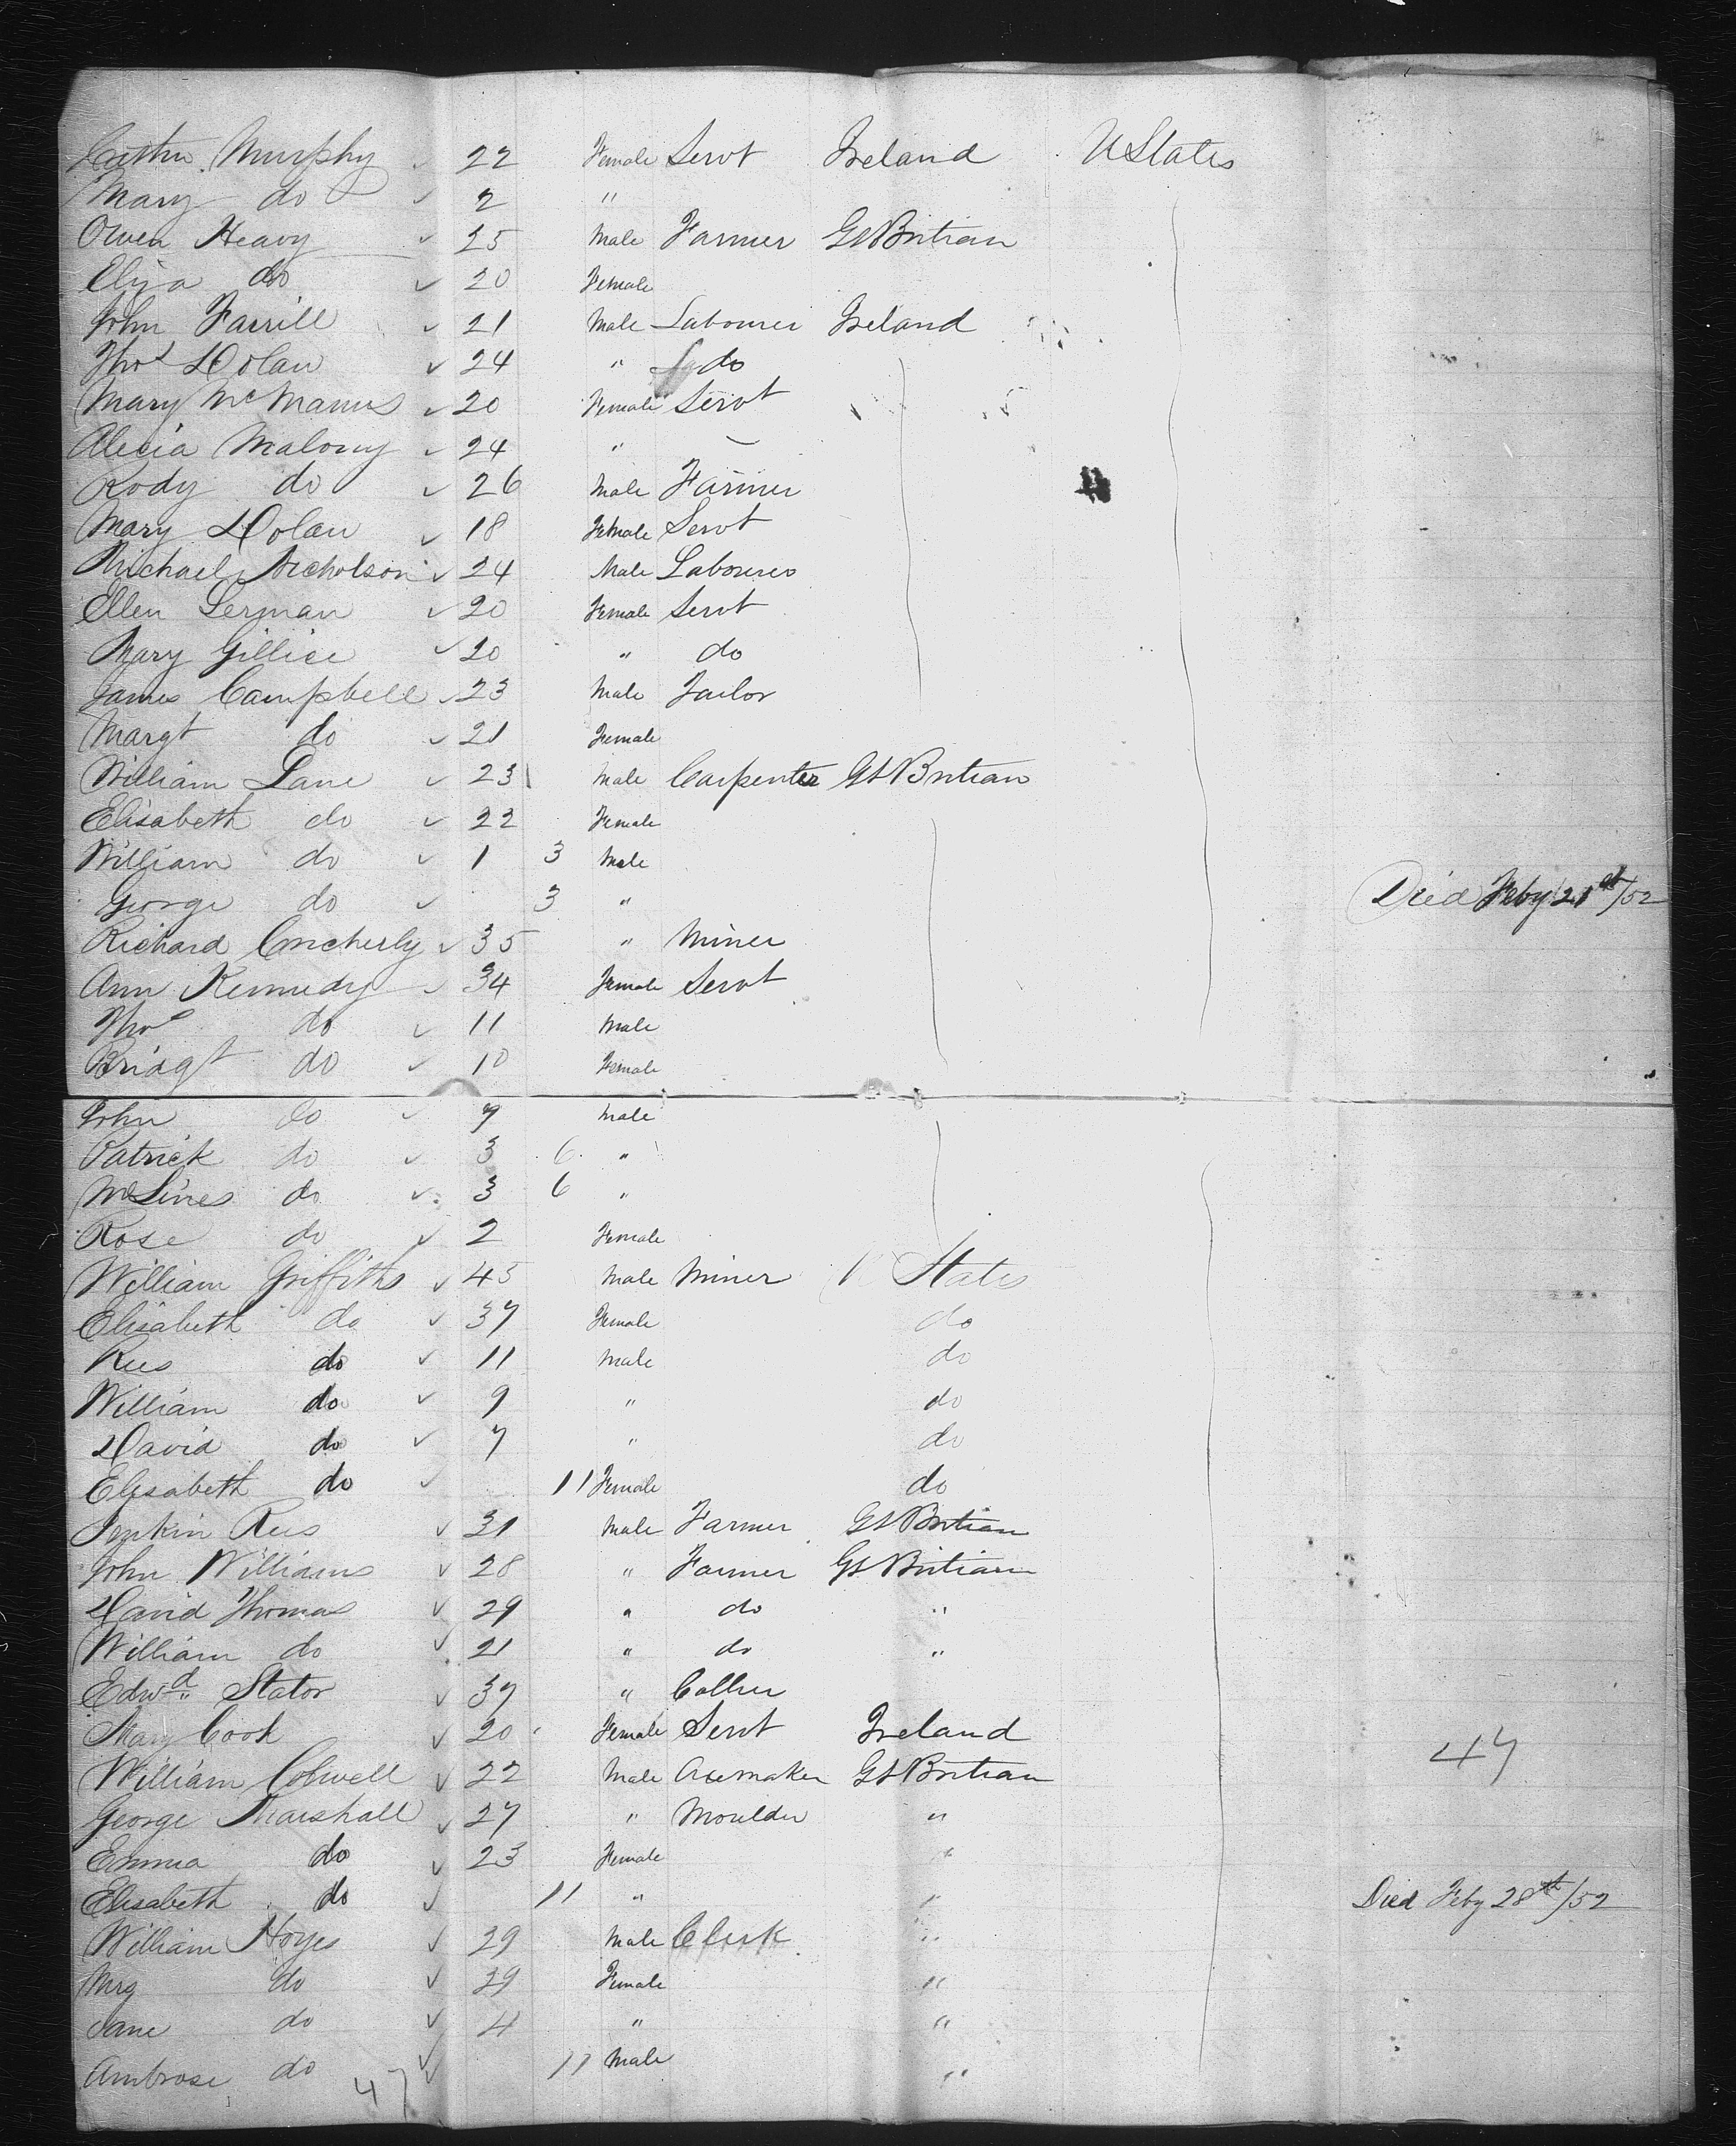 Murphy 22 Female Servt Ireland UStates
Mary do 2 "
Owen Heavy 25 Male Farmer Gt Britian
Eliza do 20 Female
John Farrill 21 Male Labourer Ireland
Thos Dolan 24 " do
Mary McManus 20 Female Servt
Alecia Malony 24 " –
Rody do 26 Male Farmer
Mary Dolan 18 Female Servt
Michael Nicholson 24 Male Labourer
Ellen Lerman 20 Female Servt
Mary Gillice 20 " do
James Campbell 23 Male Tailor
Margt do 21 Female
William Lane 23 Male Carpenter Gt Britian
Elisabeth do 22 Female
William do 1 3 Male
George do 3 " Died Feby 21st/52
Richard 35 " Miner
Ann Kennedy 34 Female Servt
Thos do 11 Male
Bridgt do 10 Female
John do 9 Male
Patrick do 3 6 "
do 3 6 "
Rose do 2 Female
William Griffiths 45 Male Miner States
Elisabeth do 37 Female do
Rees do 11 Male do
William do 9 " do
David do 7 " do
Elisabeth do 11 Female do
Jenkin Rees 31 Male Farmer Gt Britian
John Williams 28 " Farmer Gt Britian
David Thomas 29 " do "
William do 21 " do "
Edwd Stator 37 " Collier
Mary Cook 20 Female Servt Ireland
William Colwell 22 Male Axemaker Gt Britian 47
George Marshall 27 " Moulder "
Emma do 23 Female "
Elisabeth do 11 " " Died Feby 28th/52
William Hoyes 29 Male Clerk "
Mrg do 29 Female "
Jane do 4 " "
Ambrose do 11 Male "
47